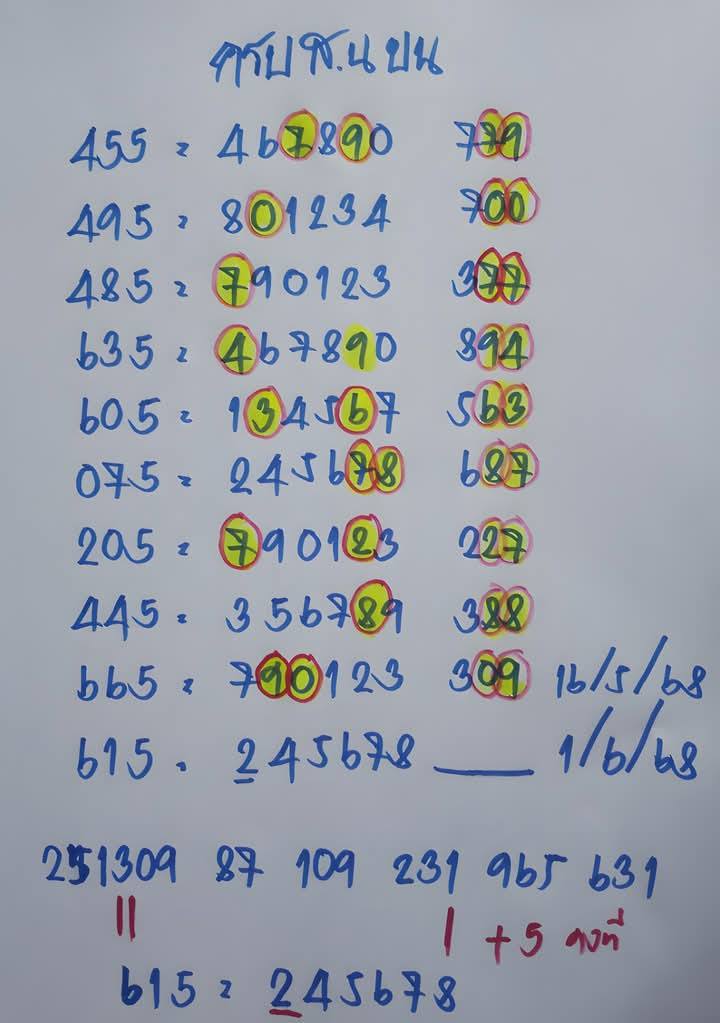 ครบ ส.น ปน
455 = 467890 779
495 = 801234 700
485 = 790123 377
635 = 467890 894
605 = 134567 563
075 = 245678 687
205 = 790123 227
445 = 356789 388
665 = 790123 309 16/5/68
615 = 245678 1/6/68
251309 87 109 231 965 631
+5 คงที่
615 = 245678